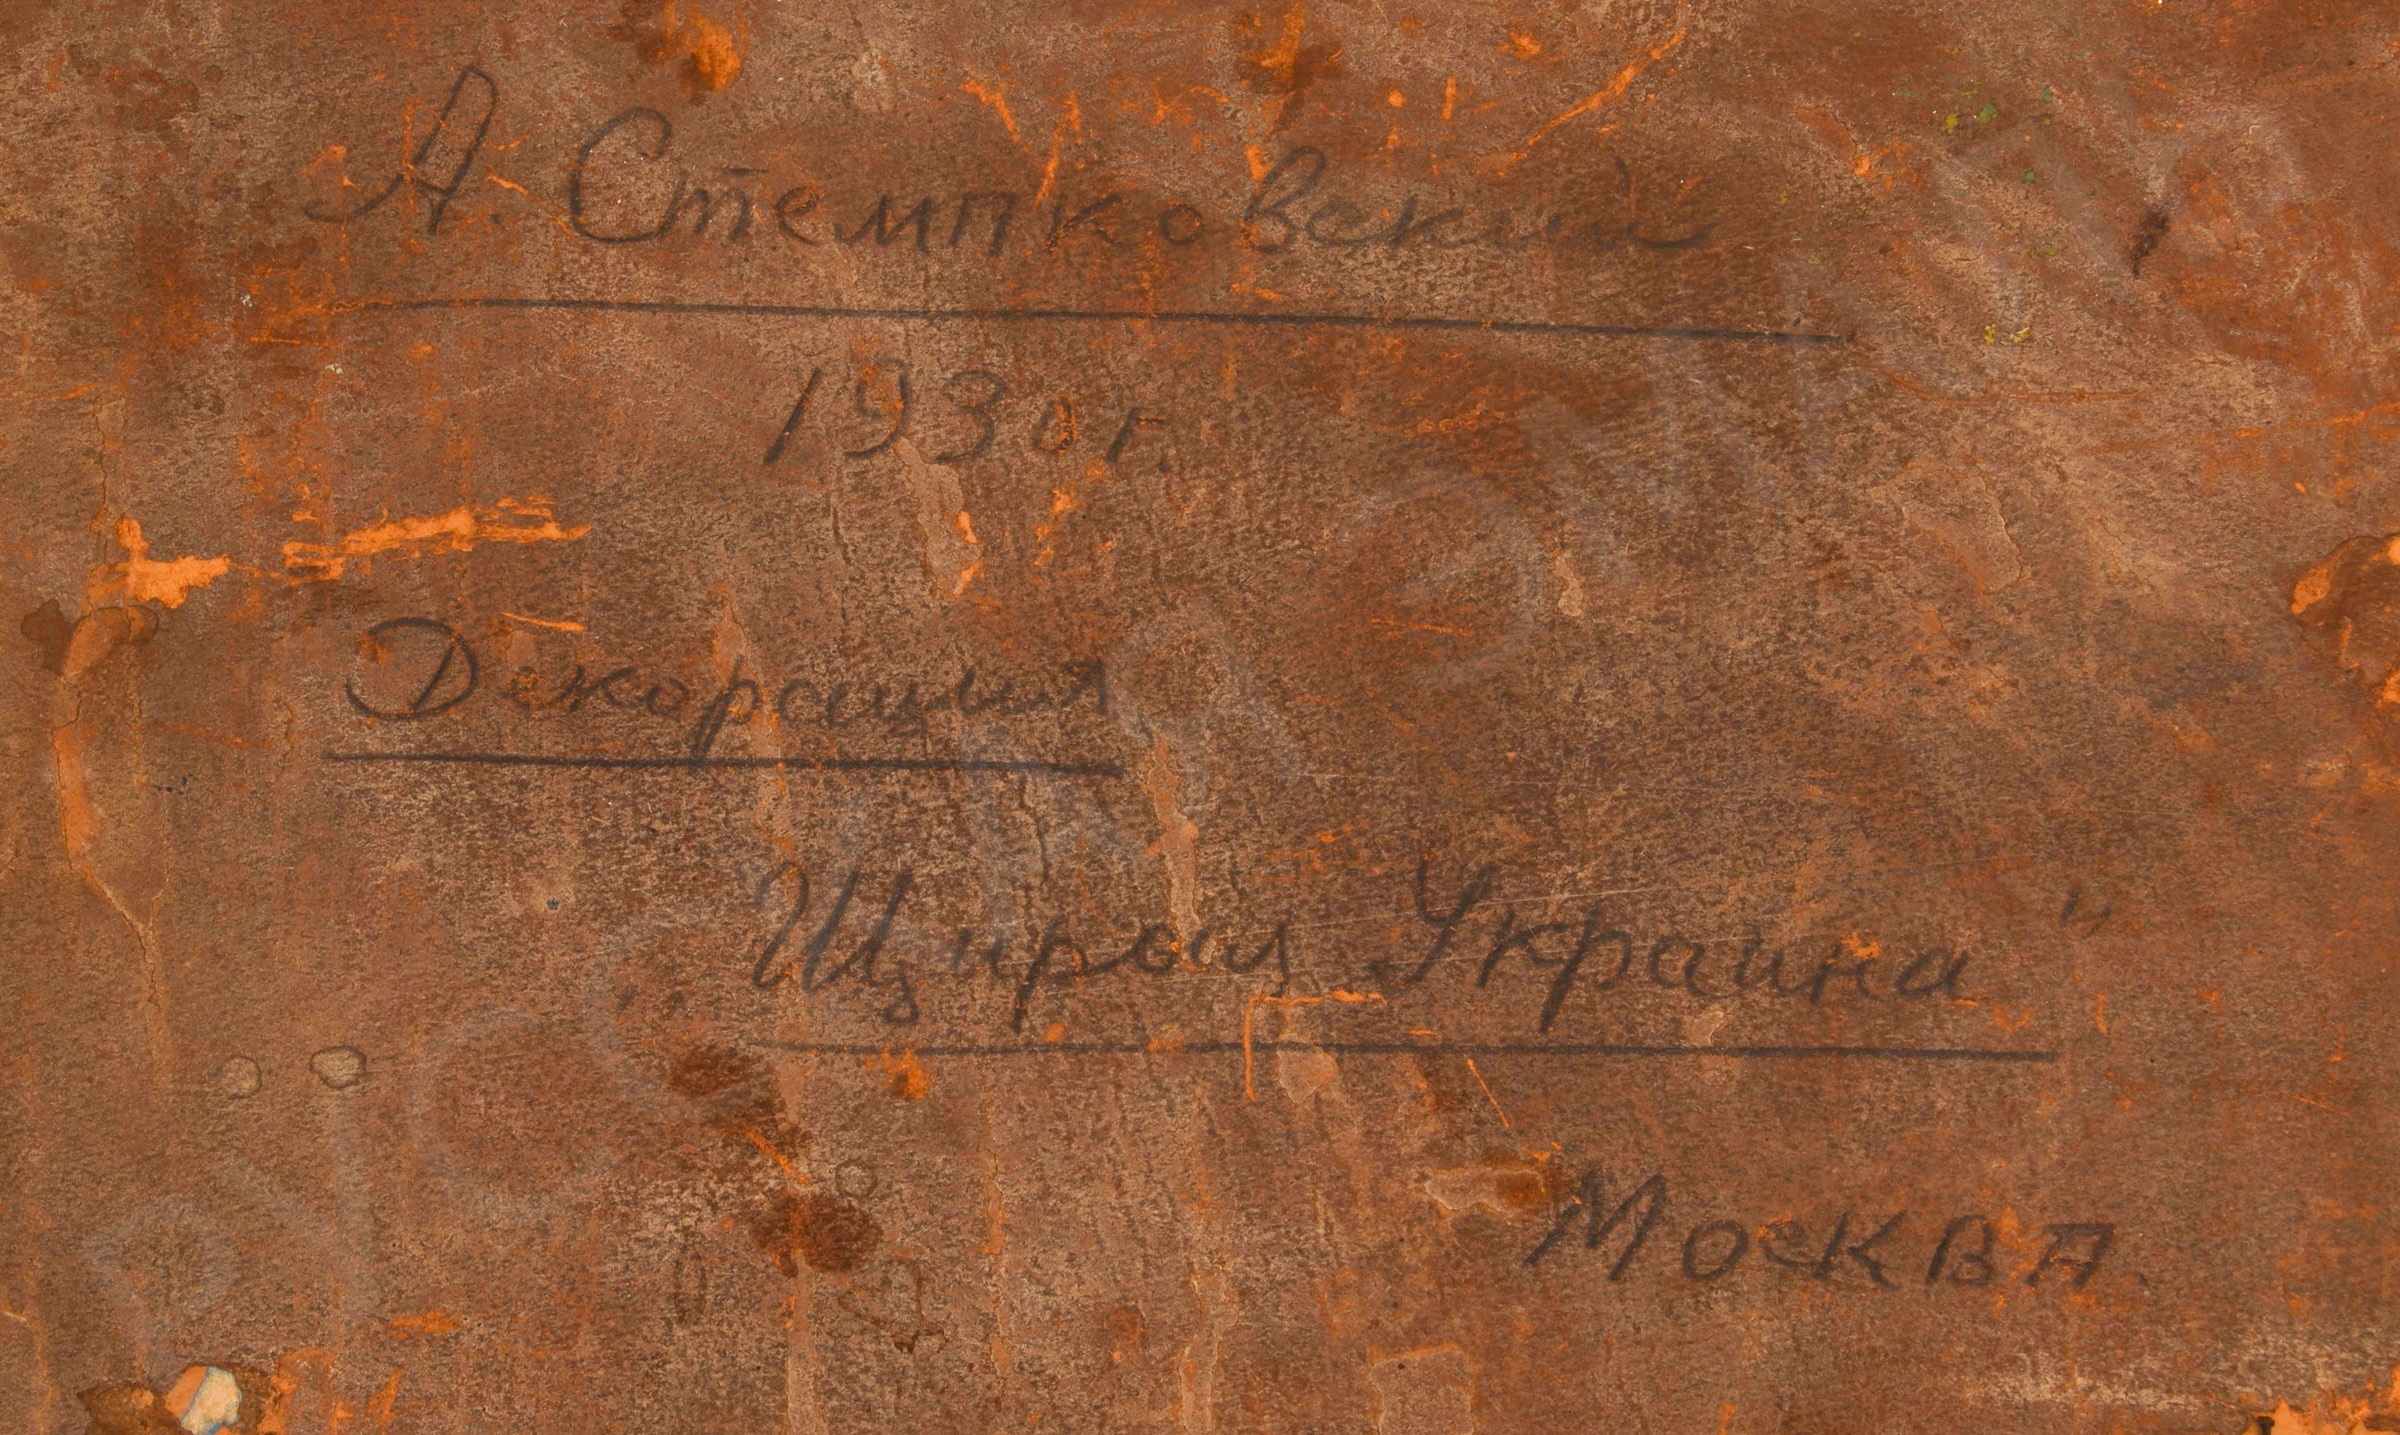 А. Стемпковский
1930 г.
Декорация
Щирая Украина"
Москва.